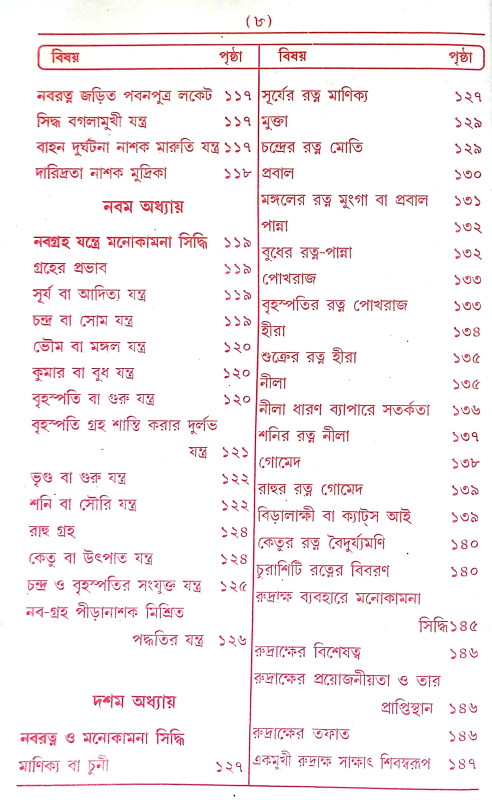 (৮)
বিষয় পৃষ্ঠা
নবরত্ন জড়িত পবনপুত্র লকেট ১১৭
সিদ্ধ বগলামুখী যন্ত্র ১১৭
বাহন দুর্ঘটনা নাশক মারুতি যন্ত্র ১১৭
দারিদ্রতা নাশক মুদ্রিকা ১১৮
নবম অধ্যায়
নবগ্রহ যন্ত্রে মনোকামনা সিদ্ধি ১১৯
গ্রহের প্রভাব ১১৯
সূর্য বা আদিত্য যন্ত্র ১১৯
চন্দ্র বা সোম যন্ত্র ১১৯
ভৌম বা মঙ্গল যন্ত্র ১২০
কুমার বা বুধ যন্ত্র ১২০
বৃহস্পতি বা গুরু যন্ত্র ১২০
বৃহস্পতি গ্রহ শান্তি করার দুর্লভ
যন্ত্র ১২১
ভৃগু বা গুরু যন্ত্র ১২২
শনি বা সৌরি যন্ত্র ১২২
রাহু গ্রহ ১২৪
কেতু বা উৎপাত যন্ত্র ১২৪
চন্দ্র ও বৃহস্পতির সংযুক্ত যন্ত্র ১২৫
নব-গ্রহ পীড়ানাশক মিশ্রিত
পদ্ধতির যন্ত্র ১২৬
দশম অধ্যায়
নবরত্ন ও মনোকামনা সিদ্ধি
মাণিক্য বা চুনী ১২৭
বিষয় পৃষ্ঠা
সূর্যের রত্ন মাণিক্য ১২৭
মুক্তা ১২৯
চন্দ্রের রত্ন মোতি ১২৯
প্রবাল ১৩০
মঙ্গলের রত্ন মুংগা বা প্রবাল ১৩১
পান্না ১৩২
বুধের রত্ন-পান্না ১৩২
পোখরাজ ১৩৩
বৃহস্পতির রত্ন পোখরাজ ১৩৩
হীরা ১৩৪
শুক্রের রত্ন হীরা ১৩৫
নীলা ১৩৫
নীলা ধারণ ব্যাপারে সতর্কতা ১৩৬
শনির রত্ন নীলা ১৩৭
গোমেদ ১৩৮
রাহুর রত্ন গোমেদ ১৩৯
বিড়ালাক্ষী বা ক্যাট্স আই ১৩৯
কেতুর রত্ন বৈদুর্য্যমণি ১৪০
চুরাশিটি রত্নের বিবরণ ১৪০
রুদ্রাক্ষ ব্যবহারে মনোকামনা
সিদ্ধি১৪৫
রুদ্রাক্ষের বিশেষত্ব ১৪৬
রুদ্রাক্ষের প্রয়োজনীয়তা ও তার
প্রাপ্তিস্থান ১৪৬
রুদ্রাক্ষের তফাত ১৪৬
একমুখী রুদ্রাক্ষ সাক্ষাৎ শিবস্বরূপ ১৪৭